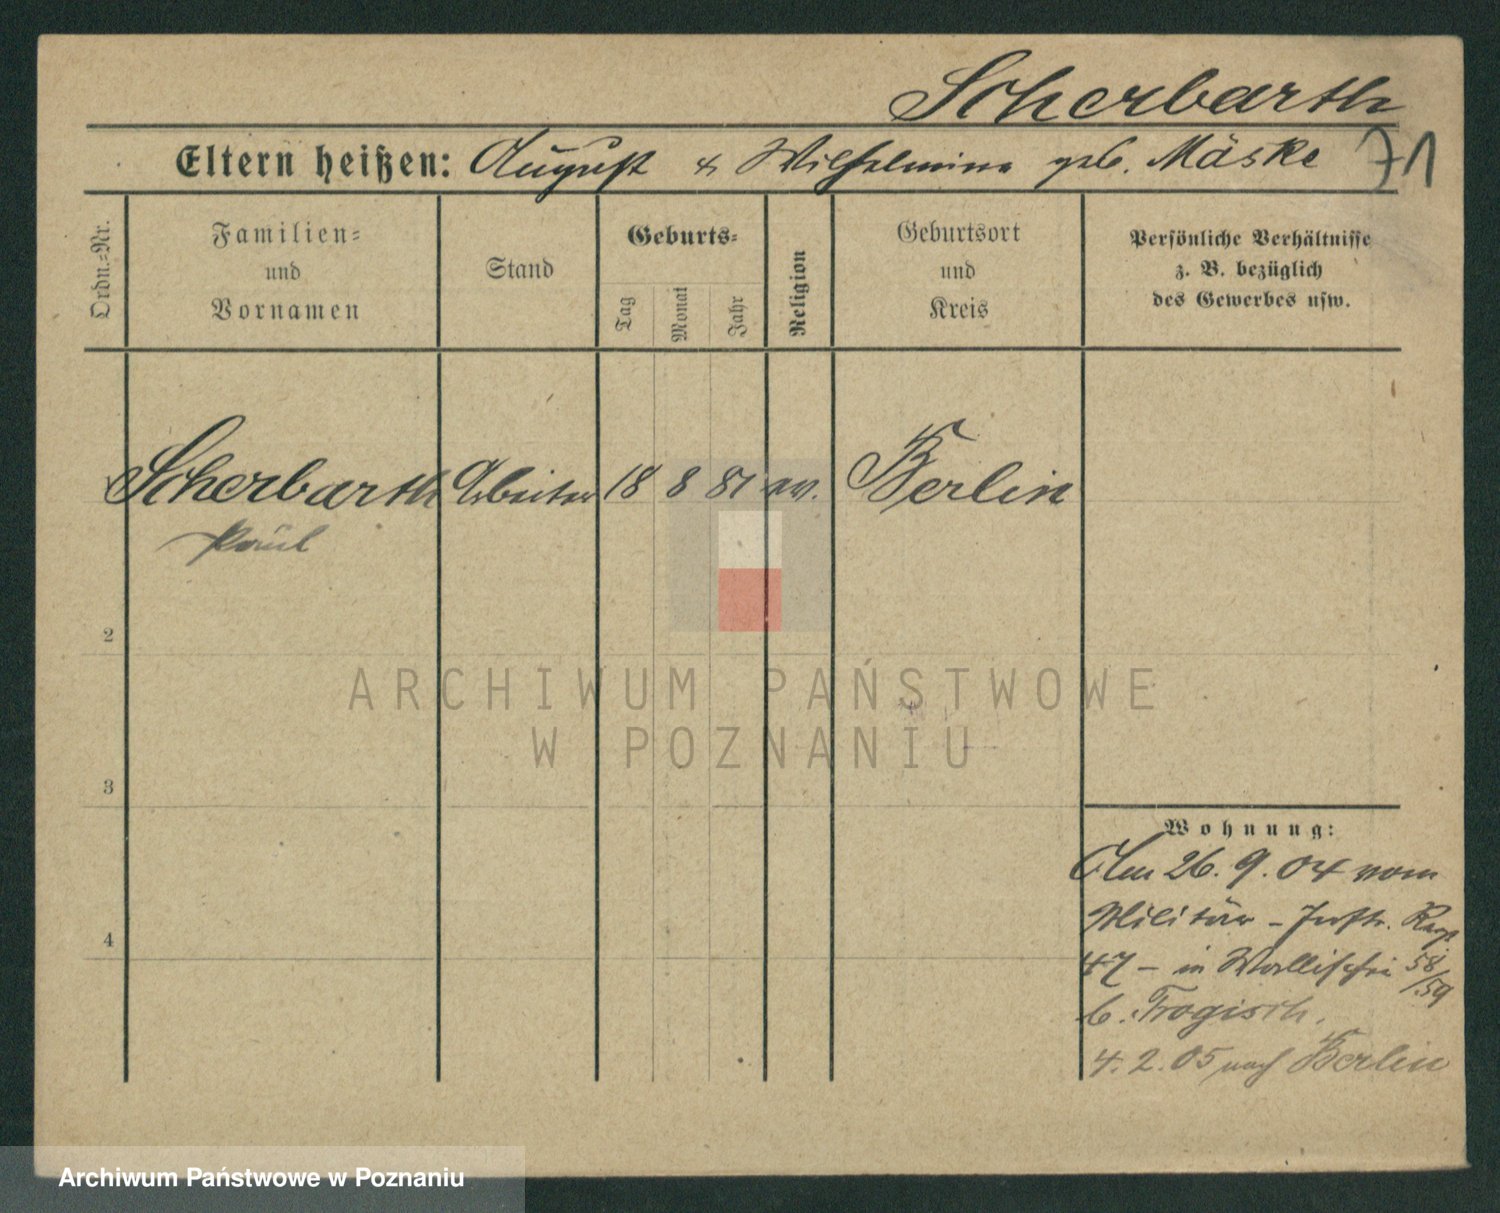 Scherbarth
Eltern heißen: August & Wilhelmine geb. Mäske 71
Ordn.-Nr.
Familien-
und
Vornamen
Stand
Geburts-
Tag
Monat
Jahr
Religion
Geburtsort
und
Kreis
Persönliche Verhältnisse
z. B. bezüglich
des Gewerbes usw.
Scherbarth Arbeiter 18 8 81 ev. Berlin
Paul
2
3
4
Wohnung:
Am 26. 9. 04 vom
Militär - Inftr. Regt
47 - in Wallischei 58/59
b. Trogisch.
4. 2. 05 nach Berlin
ARCHIWUM PAŃSTWOWE
W POZNANIU
Archiwum Państwowe w Poznaniu